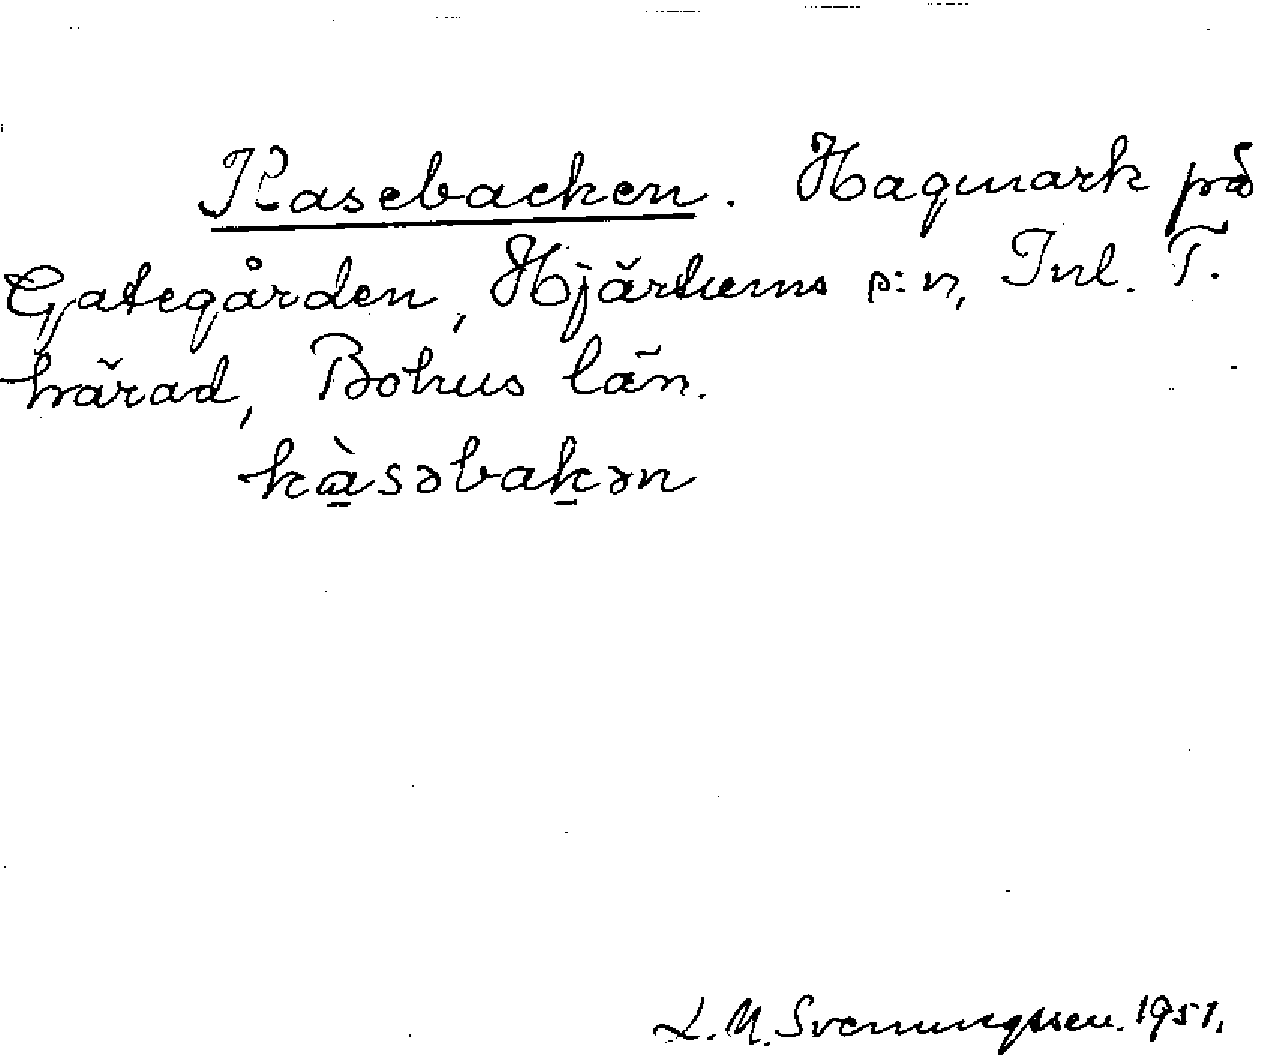 Kasebacken. Hagmark på
Gategården, Hjärtums s:n, Inl. T.
härad, Bohus län.
kàsəbakən
L.M. Svenungsson. 1951.